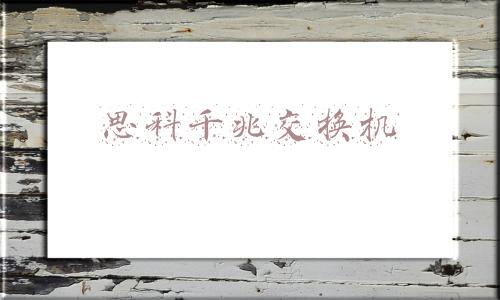 思科千兆交换机